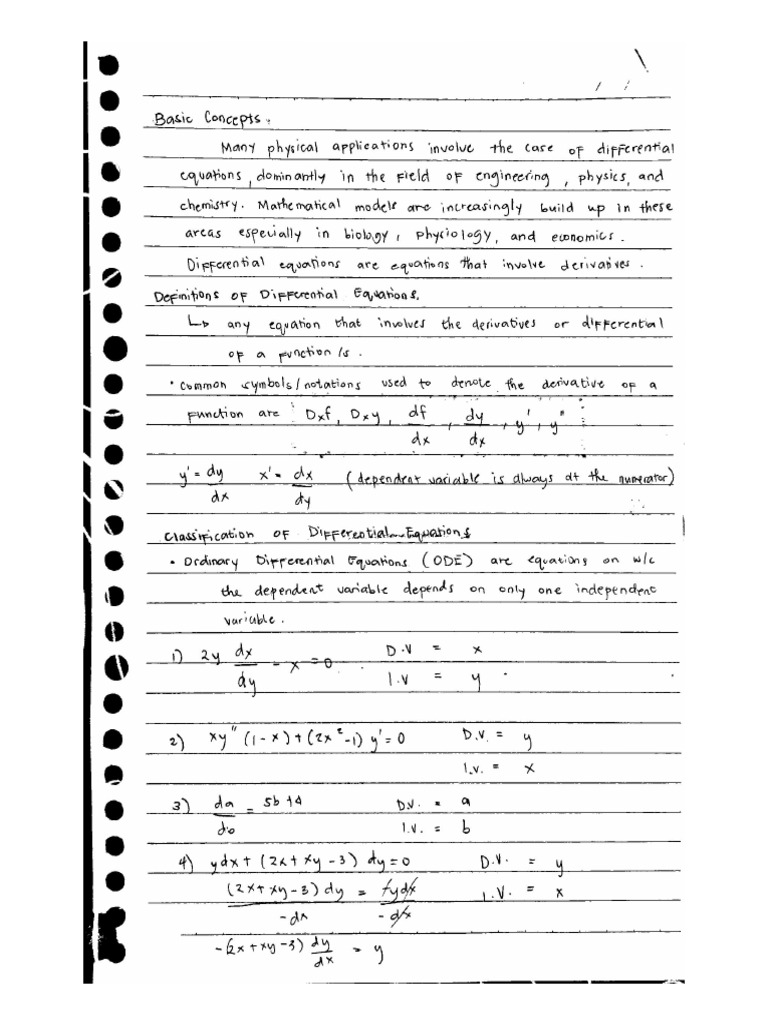 Basic Concepts.
Many physical applications involve the case of differential
equations, dominantly in the field of engineering, physics, and
chemistry. Mathematical models are increasingly build up in these
areas especially in biology, phyciology, and economics.
Differential equations are equations that involve derivatives.
Definitions of Differential Equations.
↳ any equation that involves the derivatives or differential
of a function/s.
• Common symbols/notations used to denote the derivative of a
function are : Dxf, Dxy, df/dx, dy/dx, y', y"
y' = dy/dx x' = dx/dy (dependent variable is always at the numerator)
Classification of Differential Equations
• Ordinary Differential Equations (ODE) are equations on w/c
the dependent variable depends on only one independent
variable.
1) 2y dx/dy - x = 0 D.V = x
I.V = y
2) xy" (1-x) + (2x² -1) y' = 0 D.V. = y
I.V. = x
3) da/db = 5b+4 D.V. = a
I.V. = b
4) ydx + (2x + xy - 3) dy = 0 D.V. = y
(2x + xy - 3) dy / -dx = -ydx / -dx I.V. = x
-(2x + xy - 3) dy/dx = y